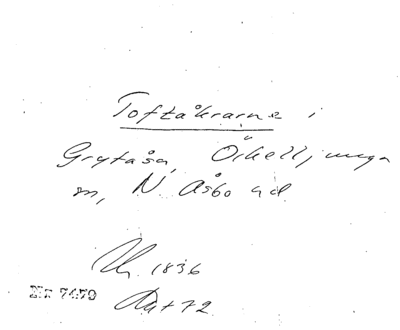 Toftåkrarne i
Grytåsa, Örkelljunga
sn, N. Åsbo hd
1836
Nr 7479
+72